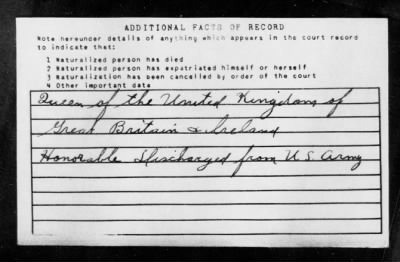 ADDITIONAL FACTS OF RECORD
Note hereunder details of anything which appears in the court record
to indicate that:
1 Naturalized person has died
2 Naturalized person has expatriated himself or herself
3 Naturalization has been cancelled by order of the court
4 Other important data
Queen of the United Kingdom of
Great Britain & Ireland
Honorable Discharged from U.S. Army